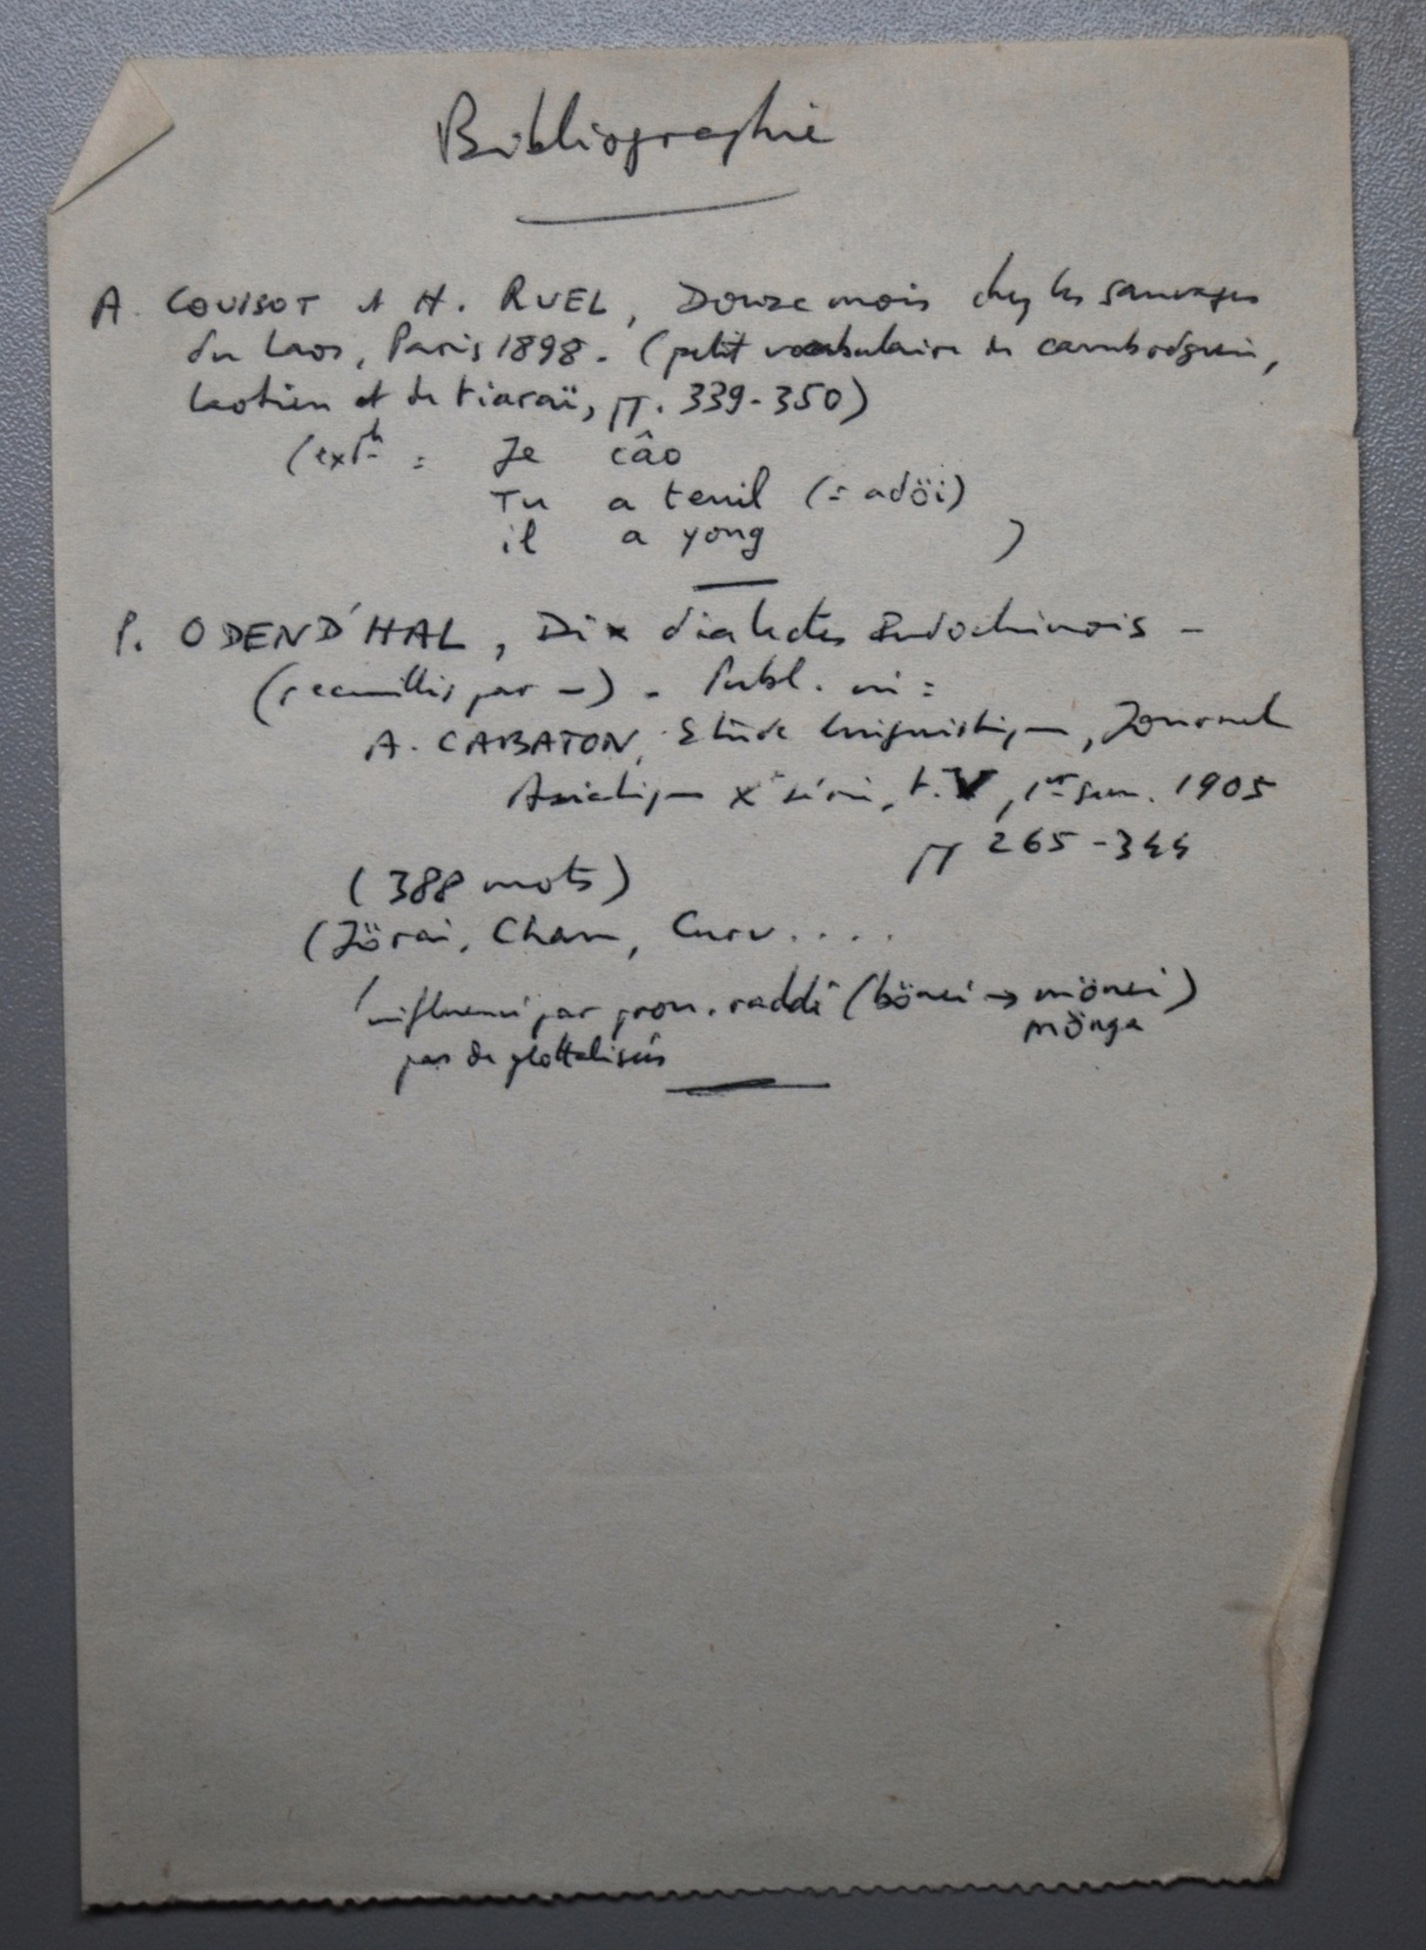 Bibliographie
A. COUISOT et H. RUEL, Douze mois chez les sauvages
du Laos, Paris 1898. (petit vocabulaire de cambodgien,
laotien et de tiaraï, pp. 339-350)
Je câo
Tu a teuil (= adöi)
il a yong )
P. ODEND'HAL, Dix dialectes Indochinois -
(recueillis par -). Publ. in :
A. CABATON, Etude linguistique, Journal
Asiatique Xe série, t. V, 1er sem. 1905
pp 265-344
(388 mots)
(Jörai, Cham, Curu....
influencé par pron. raddé (bönei → mönei)
mönga
pas de glottalisées